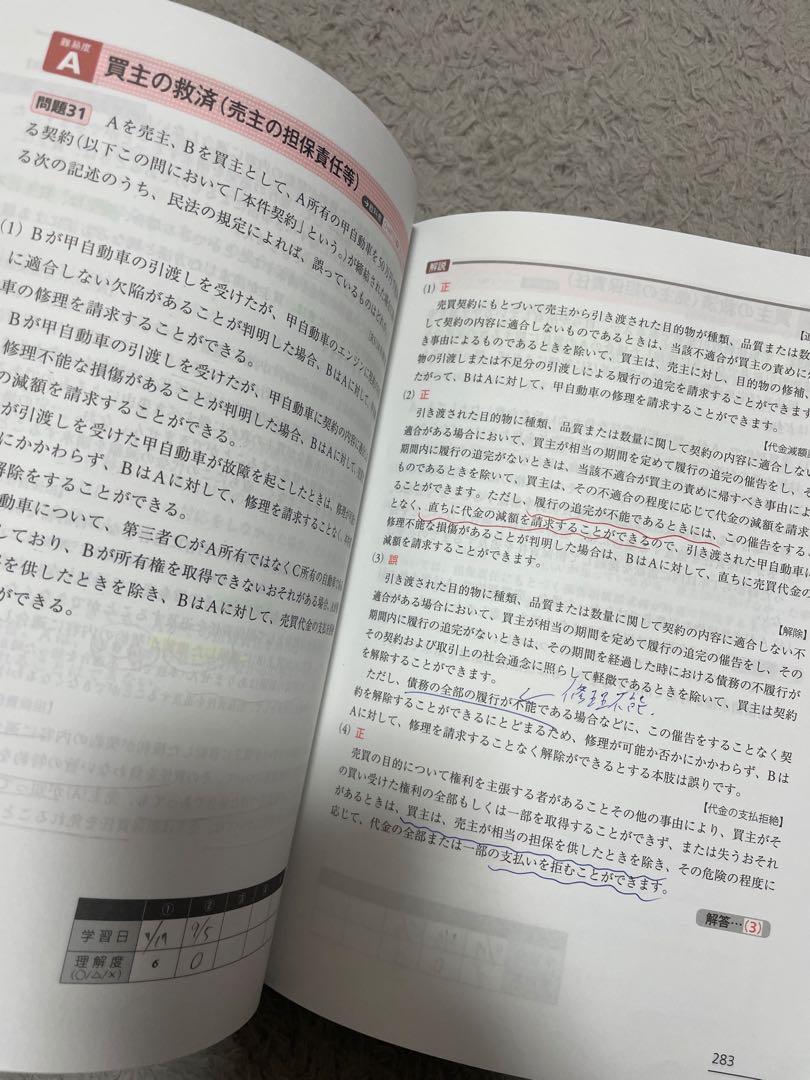 難易度
A
買主の救済(売主の担保責任等)
問題31 Aを売主、Bを買主として、A所有の甲自動車を50万円
る契約(以下この問において「本件契約」という。)が締結された
る次の記述のうち、民法の規定によれば、誤っているものはどれ
(1) Bが甲自動車の引渡しを受けたが、甲自動車のエンジンに
に適合しない欠陥があることが判明した場合、BはAに対して、
車の修理を請求することができる。
Bが甲自動車の引渡しを受けたが、甲自動車に契約の内容に
修理不能な損傷があることが判明した場合、BはAに対して、
の減額を請求することができる。
が引渡しを受けた甲自動車が故障を起こしたときは、修理が可能
にかかわらず、BはAに対して、修理を請求することなく、
解除をすることができる。
動車について、第三者CがA所有ではなくC所有の自動車で
しており、Bが所有権を取得できないおそれがある場合、
を供したときを除き、BはAに対して、売買代金の支払を
ができる。
① ② 3 4
学習日 9/5
理解度
(○/△/×) 6 0
解説
(1) 正
売買契約にもとづいて売主から引き渡された目的物が種類、品質または数
して契約の内容に適合しないものであるときは、当該不適合が買主の責めに
き事由によるものであるときを除いて、買主は、売主に対し、目的物の修補、
物の引渡しまたは不足分の引渡しによる履行の追完を請求することができます
たがって、BはAに対して、甲自動車の修理を請求することができます。
(2) 正
【代金減額
引き渡された目的物に種類、品質または数量に関して契約の内容に適合しな
適合がある場合において、買主が相当の期間を定めて履行の追完の催告をし、そ
期間内に履行の追完がないときは、当該不適合が買主の責めに帰すべき事由によ
ものであるときを除いて、買主は、その不適合の程度に応じて代金の減額を請求
ることができます。ただし、履行の追完が不能であるときには、この催告をする
となく、直ちに代金の減額を請求することができるので、引き渡された甲自動車に
修理不能な損傷があることが判明した場合は、BはAに対して、直ちに売買代金の
減額を請求することができます。
(3) 誤
【解除】
引き渡された目的物に種類、品質または数量に関して契約の内容に適合しない不
適合がある場合において、買主が相当の期間を定めて履行の追完の催告をし、その
期間内に履行の追完がないときは、その期間を経過した時における債務の不履行が
その契約および取引上の社会通念に照らして軽微であるときを除いて、買主は契約
を解除することができます。
修理不能.
ただし、債務の全部の履行が不能である場合などに、この催告をすることなく契
約を解除することができるにとどまるため、修理が可能か否かにかかわらず、Bは
Aに対して、修理を請求することなく解除ができるとする本肢は誤りです。
(4) 正
【代金の支払拒絶】
売買の目的について権利を主張する者があることその他の事由により、買主がそ
の買い受けた権利の全部もしくは一部を取得することができず、または失うおそれ
があるときは、買主は、売主が相当の担保を供したときを除き、その危険の程度に
応じて、代金の全部または一部の支払いを拒むことができます。
解答…(3)
283